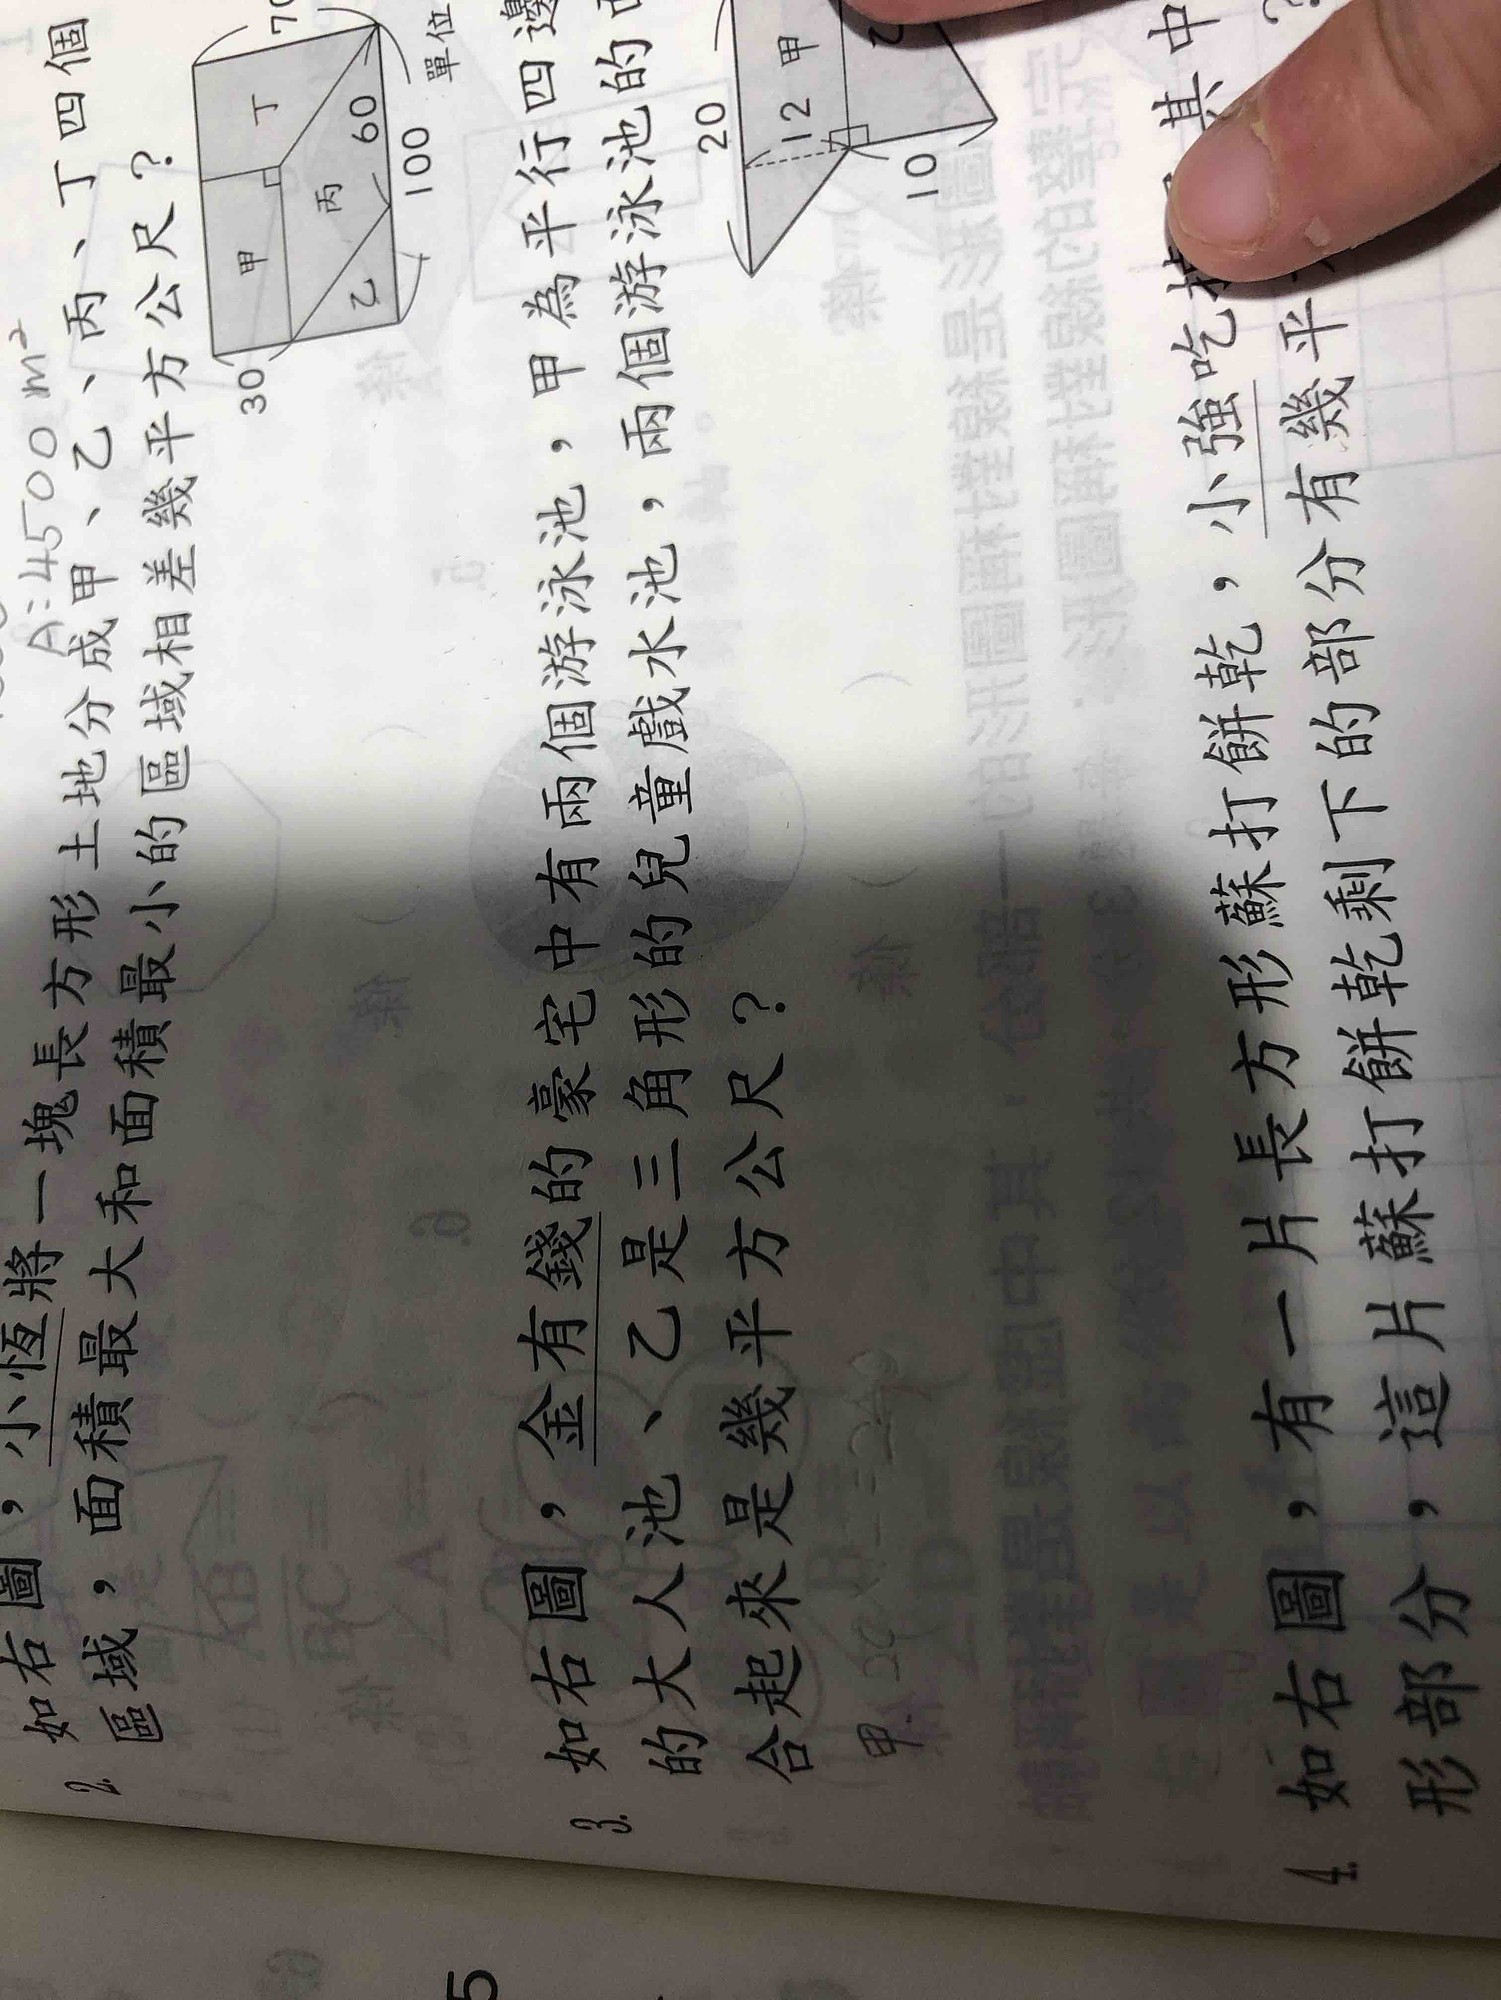 A:4500m²
2. 如右圖，小恆將一塊長方形土地分成甲、乙、丙、丁四個
區域，面積最大和面積最小的區域相差幾平方公尺？
70
丁
甲
丙
乙
60
100
30
單位
3. 如右圖，金有錢的豪宅中有兩個游泳池，甲為平行四邊
的大人池、乙是三角形的兒童戲水池，兩個游泳池的
合起來是幾平方公尺？
20
甲
12
乙
10
甲
4. 如右圖，有一片長方形蘇打餅乾，小強吃掉 其中
形部分，這片蘇打餅乾剩下的部分有幾平 ？
5